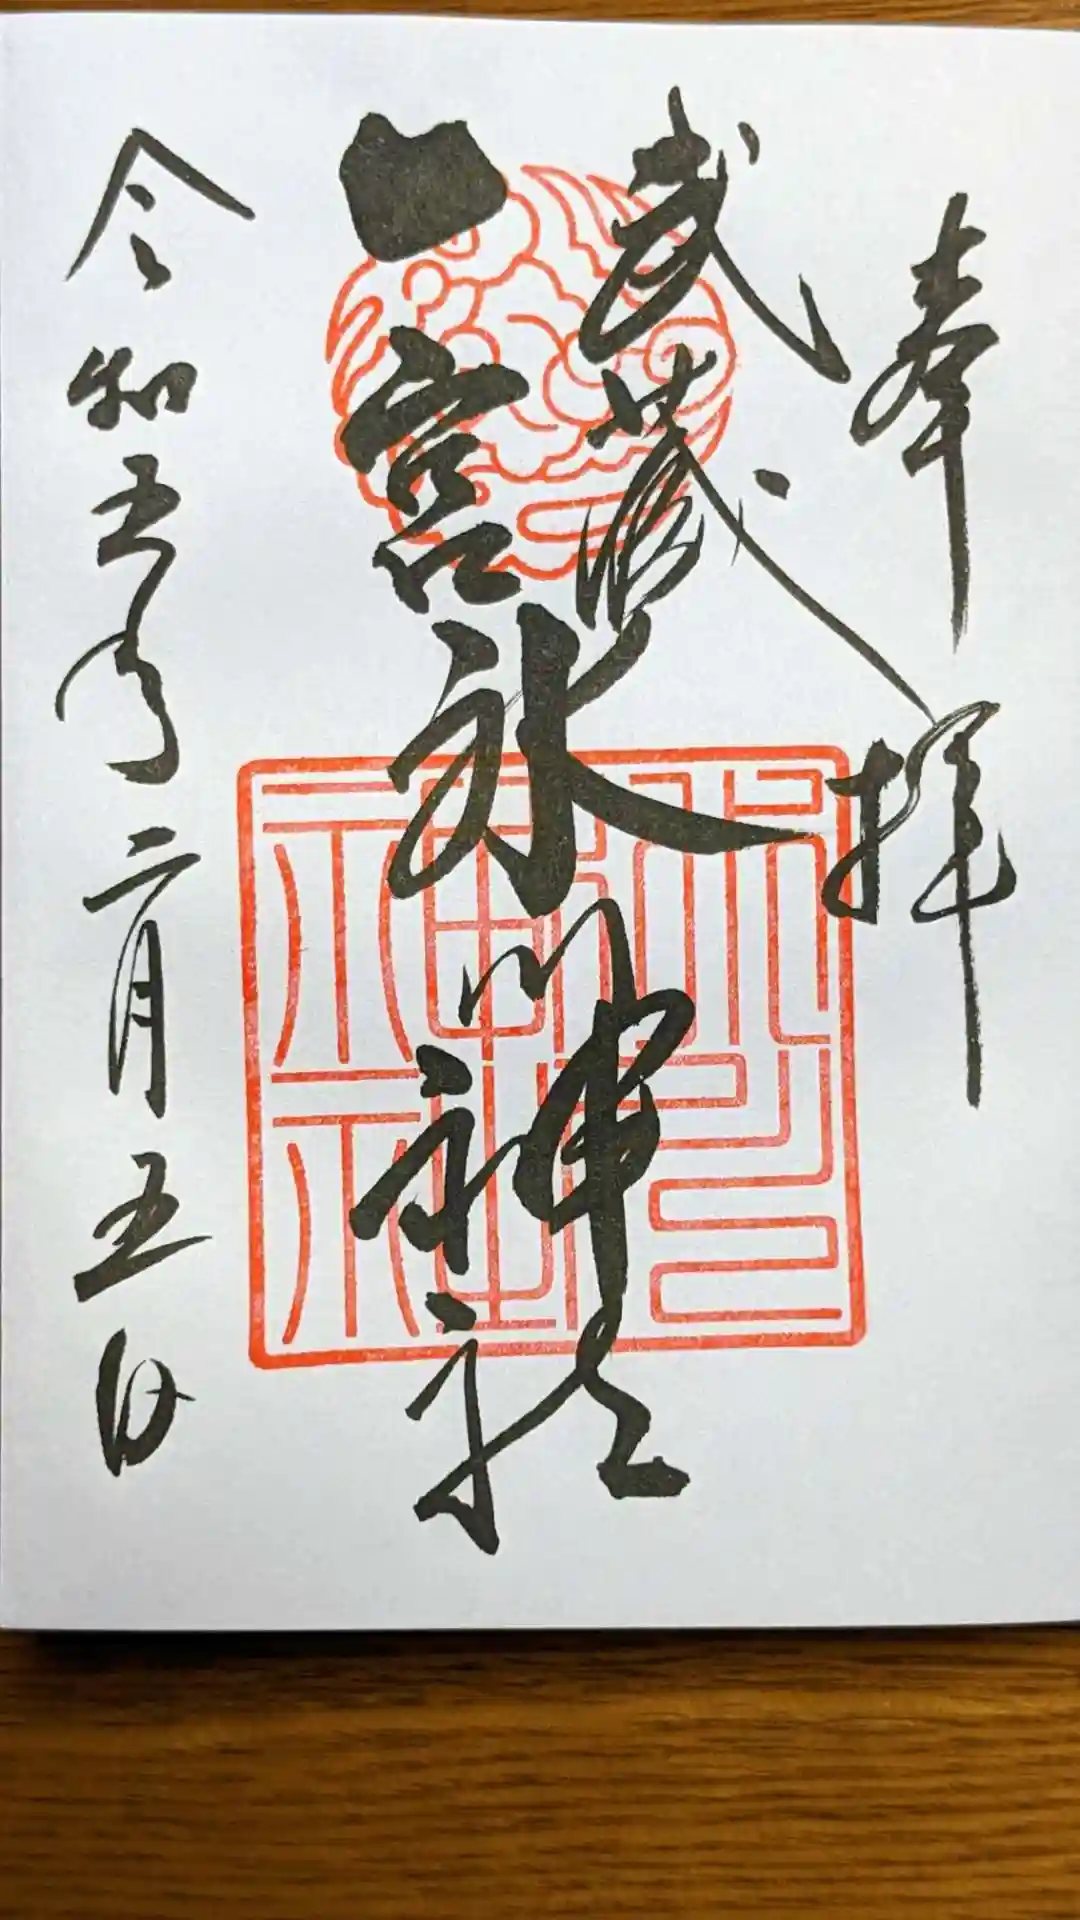 奉拝
武蔵
一宮氷川神社
令和五年二月五日
氷川
神社